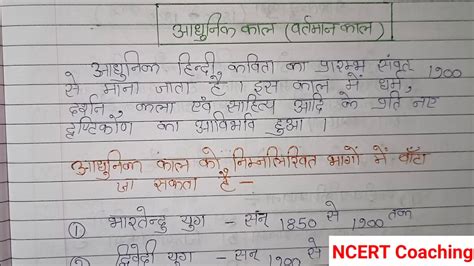 आधुनिक काल (वर्तमान काल)
आधुनिक हिन्दी कविता का प्रारम्भ संवत् 1900
से माना जाता है। इस काल में धर्म,
दर्शन, कला एवं साहित्य आदि के प्रति नए
दृष्टिकोण का आविर्भाव हुआ।
आधुनिक काल को निम्नलिखित भागों में बाँटा
जा सकता है -
① भारतेन्दु युग - सन् 1850 से 1900 तक
② द्विवेदी युग - सन् 1900 से
NCERT Coaching